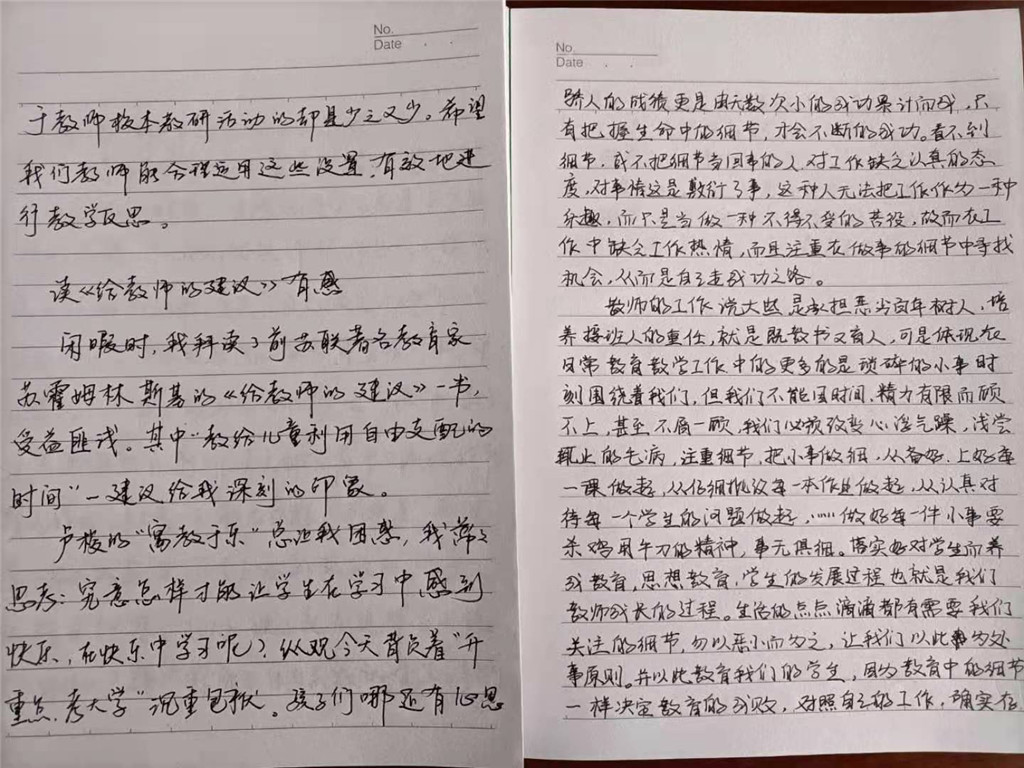 No.
Date . .
于教师校本教研活动的却是少之又少。希望
我们教师能合理运用这些设置,有效地进
行教学反思。
读《给教师的建议》有感
闲暇时,我拜读了前苏联著名教育家
苏霍姆林斯基的《给教师的建议》一书,
受益匪浅。其中"教给儿童利用自由支配的
时间"一建议给我深刻的印象。
卢梭的"寓教于乐"总让我困惑,我常常
思考:究意怎样才能让学生在学习中感到
快乐,在快乐中学习呢?纵观今天背负着"升
重点,考大学"沉重包袱。孩子们哪还有心思
No.
Date . .
骄人的成绩更是由无数次小的成功累计而成,只
有把握生命中的细节,才会不断的成功。看不到
细节,或不把细节当回事的人,对工作缺乏认真的态
度,对事情这是敷衍了事,这种人无法把工作作为一种
乐趣,而只是当做一种不得不受的苦役,故而在工
作中缺乏工作热情,而且注重在做事的细节中寻找
机会,从而是自己走成功之路。
教师的工作说大些是承担恶当百年树人,培
养接班人的重任,就是既教书又育人,可是体现在
日常教育教学工作中的更多的是琐碎的小事时
刻围绕着我们,但我们不能因时间,精力有限而顾
不上,甚至不屑一顾,我们必须改变心浮气躁,浅尝
辄止的毛病,注重细节,把小事做细,从备好.上好每
一课做起,从仔细批改每一本作业做起,从认真对
待每一个学生的问题做起,……做好每一件小事要
杀鸡用牛刀的精神,事无俱细。落实好对学生而养
成教育,思想教育,学生的发展过程也就是我们
教师成长的过程。生活的点点滴滴都有需要我们
关注的细节,勿以恶小而为之,让我们以此为处
事原则。并以此教育我们的学生,因为教育中的细节
一样决定教育的成败,对照自己的工作,确实存